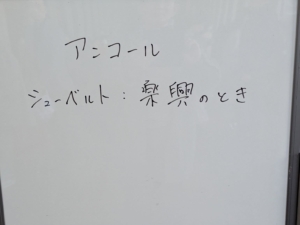 アンコール
シューベルト：楽興のとき